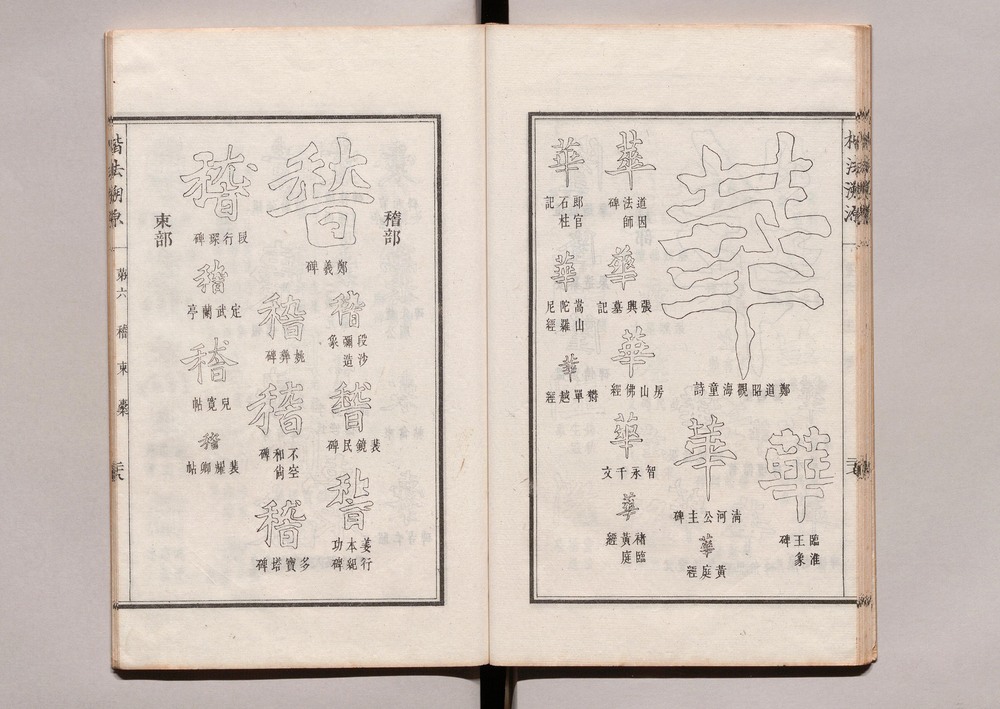 楷法溯源
華
鄭道昭觀海童詩
華
臨淮
王象
碑
華
清河公主碑
華
黃庭經
華
道因
法師
碑
華
張興墓記
華
房山佛經
華
智永千文
華
褚臨
黃庭
經
華
郎官
石柱
記
華
嵩山
陀羅
尼經
華
鬱單越經
稽部
稽
鄭羲碑
稽
段沙
彌造
象
稽
裴鏡民碑
稽
姜行
本紀
功碑
稽
姚彝碑
稽
不空
和尚
碑
稽
多寶塔碑
稽
段行琛碑
稽
定武蘭亭
稽
兒寬帖
稽
裴耀卿帖
東部
楷法溯源
第六
稽
東
㯥